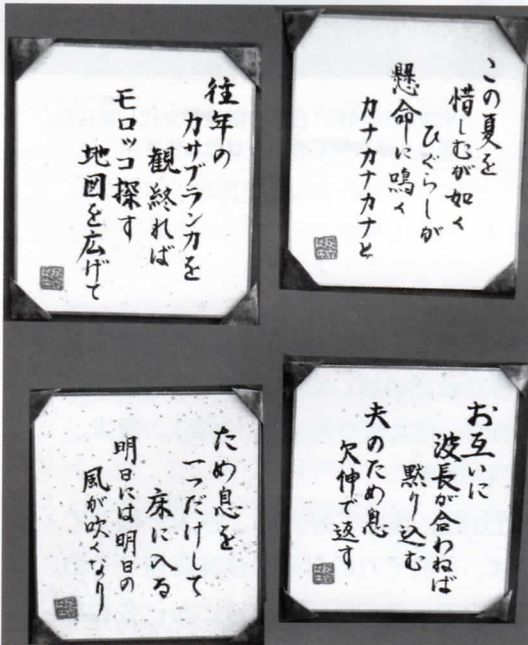 この夏を
惜しむが如く
ひぐらしが
懸命に鳴く
カナカナカナと
往年の
カサブランカを
観終れば
モロッコ探す
地図を広げて
お互いに
波長が合わねば
黙り込む
夫のため息
欠伸で返す
ため息を
一つだけして
床に入る
明日には明日の
風が吹くなり